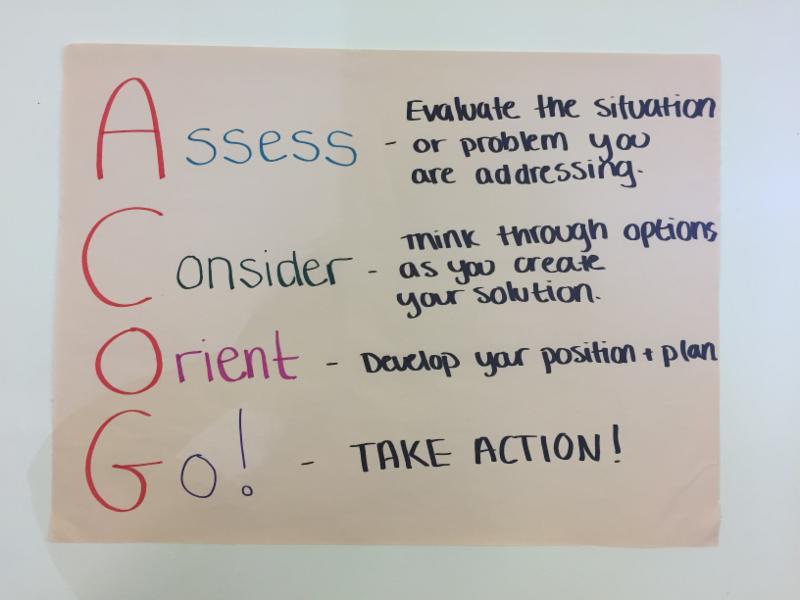 Evaluate the situation
Assess - or problem you
are addressing.
Think through options
Consider - as you create
your solution.
Orient - Develop your position + plan
Go! - TAKE ACTION!